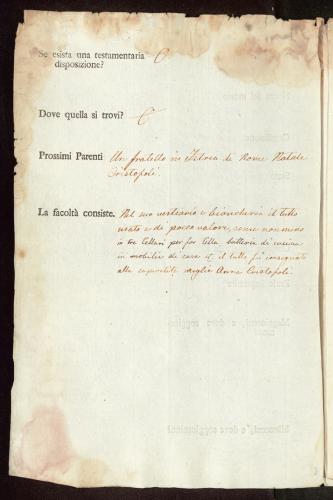 Se esista una testamentaria
disposizione?
Dove quella si trovi?
Prossimi Parenti Un fratello in Istria di Nome Natale
Cristopoli.
La facoltà consiste. Nel suo vestiario e biancheria il tutto
usato e di poco valore, come non meno
in tre Tellari per far Tella batteria di cucina
in mobilie di casa il tutto fu consegnato
alla moglie Anna Cristopoli.